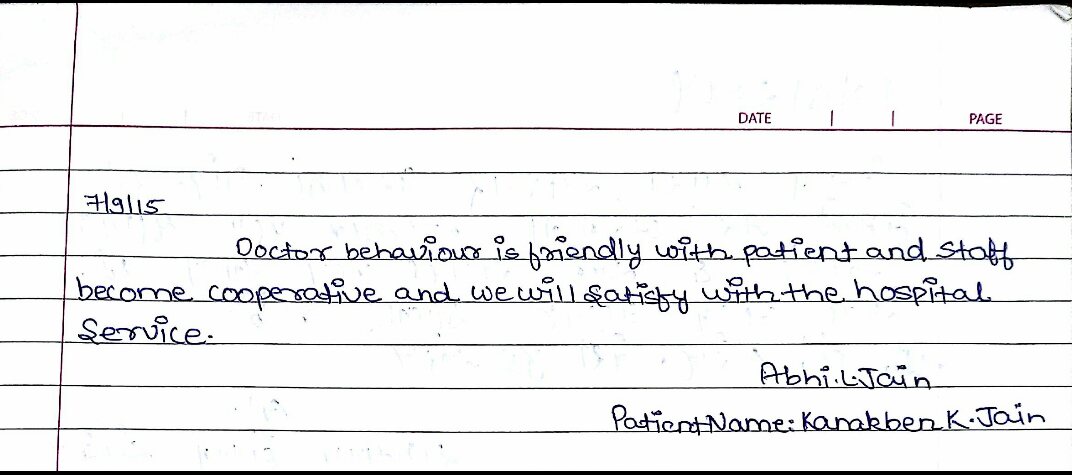 DATE | | PAGE
7/9/15
Doctor behaviour is friendly with patient and staff
become cooperative and we will satisfy with the hospital
Service.
Abhi.L.Jain
Patient Name: Kanakben K. Jain